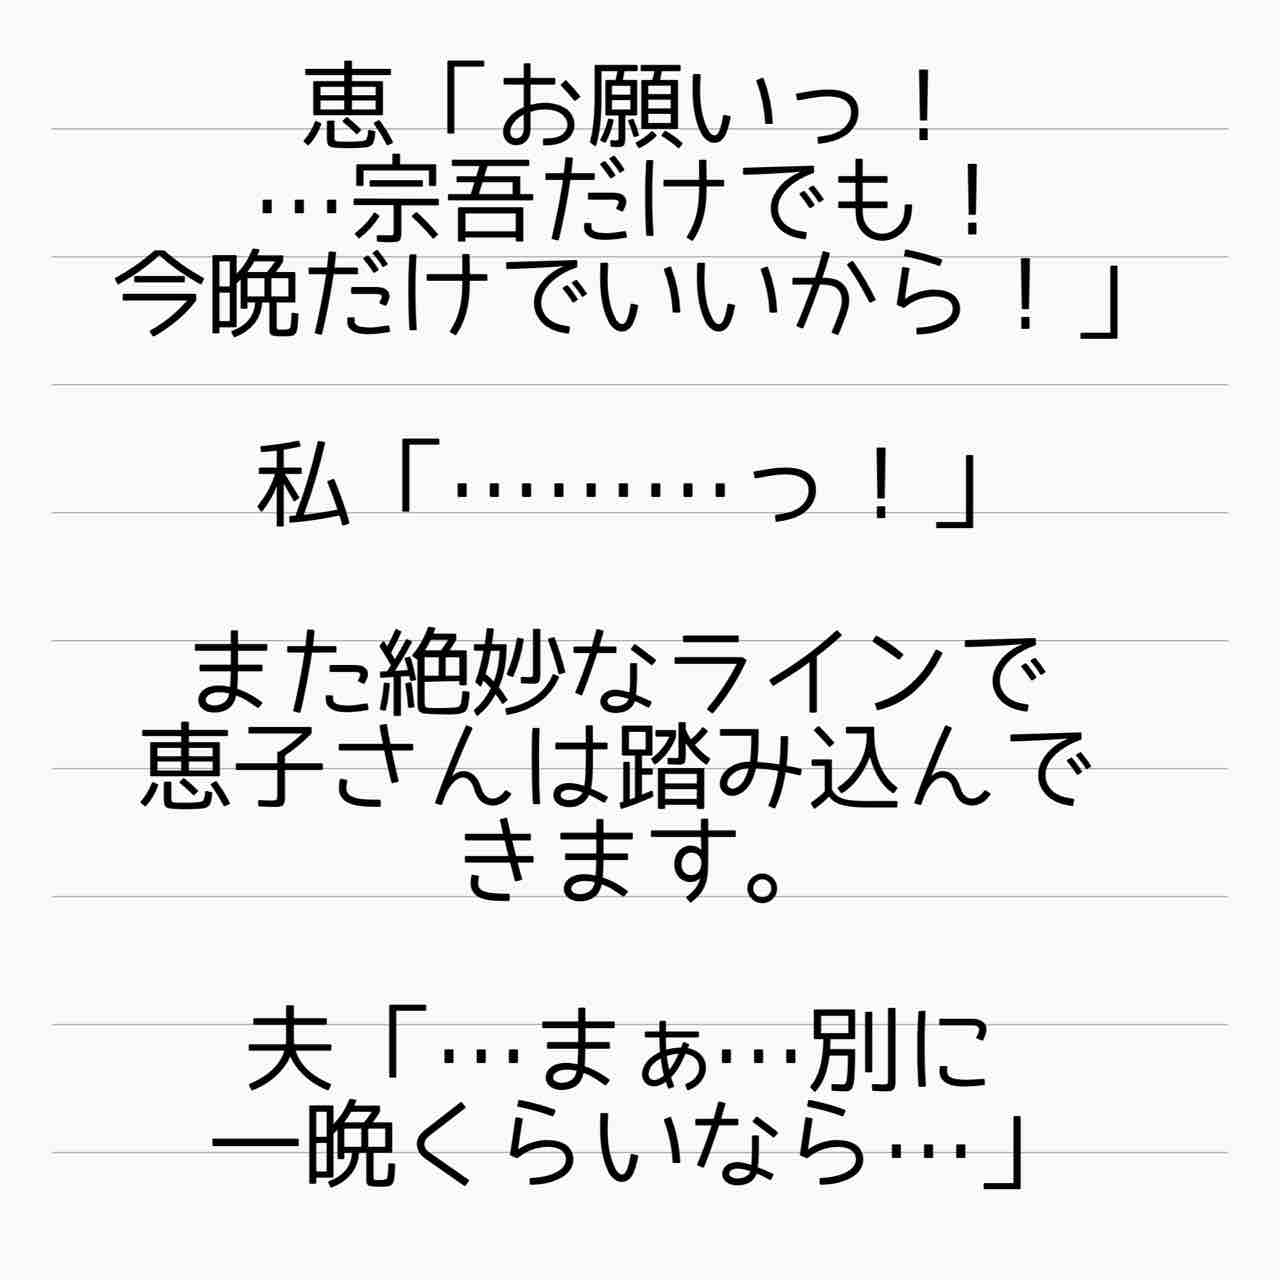 恵「お願いっ！
…宗吾だけでも！
今晩だけでいいから！」
私「………っ！」
また絶妙なラインで
恵子さんは踏み込んで
きます。
夫「…まぁ…別に
一晩くらいなら…」